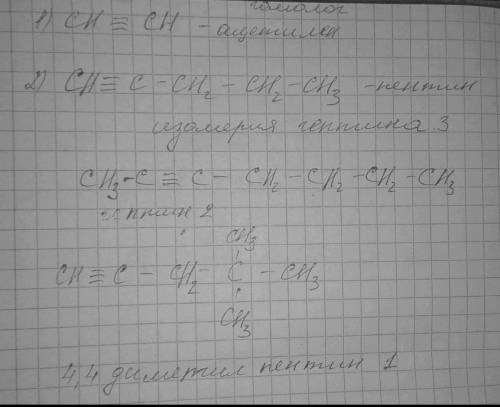 гомолог
1) CH ≡ CH - ацетилен
2) CH ≡ C - CH₂ - CH₂ - CH₃ -пентин
изомерия гептина 3
CH₃ - C ≡ C - CH₂ - CH₂ - CH₂ - CH₃
птин 2
CH₃
CH ≡ C - CH₂ - C - CH₃
CH₃
4,4 диметил пентин 1